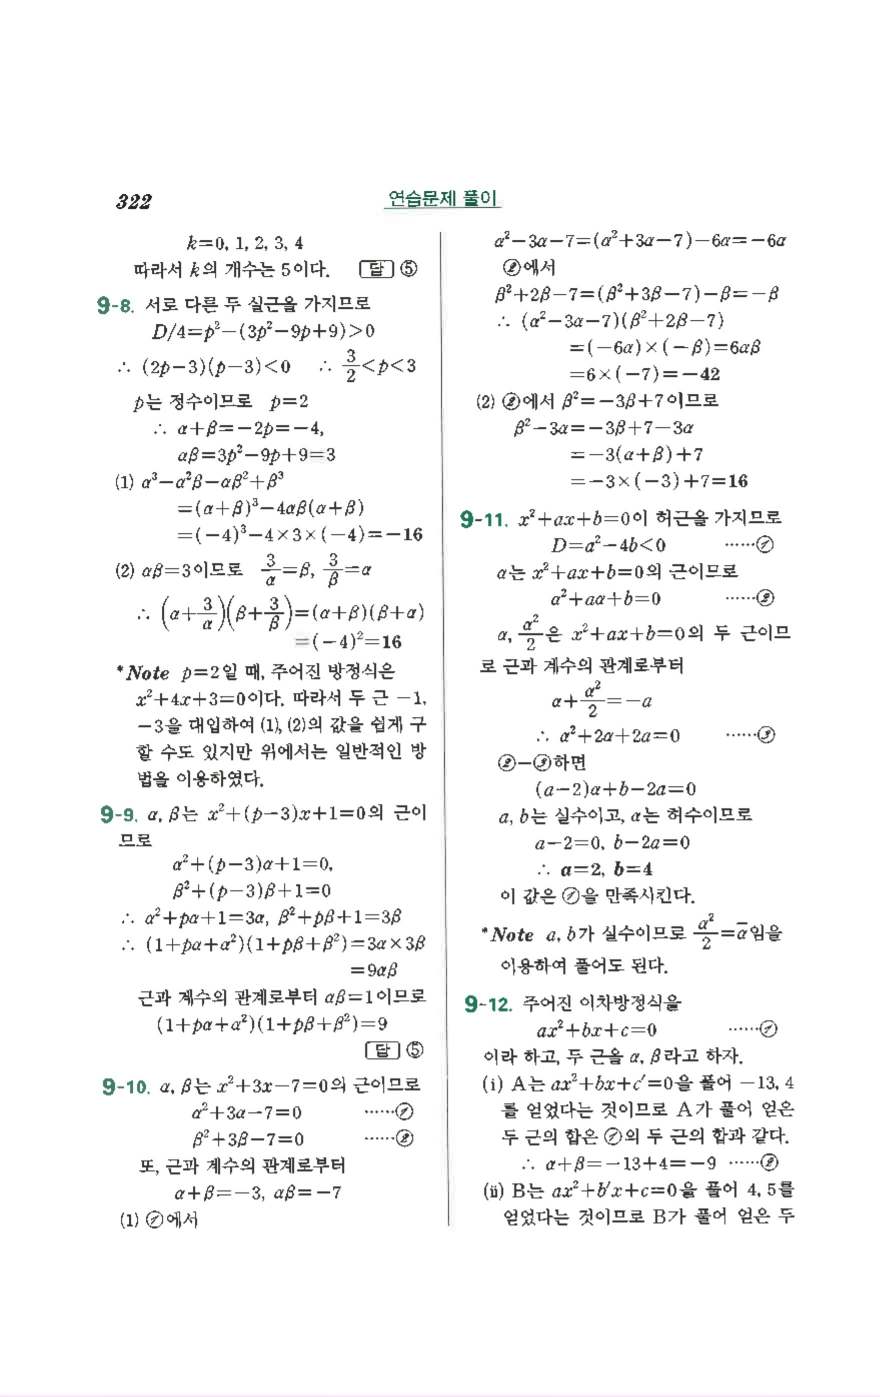 322
연습문제 풀이
k=0, 1, 2, 3, 4
따라서 k의 개수는 5이다. 답 ⑤
9-8. 서로 다른 두 실근을 가지므로
D/4=p²-(3p²-9p+9)>0
∴ (2p-3)(p-3)<0 ∴ 3/2<p<3
p는 정수이므로 p=2
∴ α+β=-2p=-4,
αβ=3p²-9p+9=3
(1) α³-α²β-αβ²+β³
=(α+β)³-4αβ(α+β)
=(-4)³-4×3×(-4)=-16
(2) αβ=3이므로 3/α=β, 3/β=α
∴ (α+3/α)(β+3/β)=(α+β)(β+α)
=(-4)²=16
*Note p=2일 때, 주어진 방정식은
x²+4x+3=0이다. 따라서 두 근 -1,
-3을 대입하여 (1), (2)의 값을 쉽게 구
할 수도 있지만 위에서는 일반적인 방
법을 이용하였다.
9-9. α, β는 x²+(p-3)x+1=0의 근이
므로
α²+(p-3)α+1=0,
β²+(p-3)β+1=0
∴ α²+pα+1=3α, β²+pβ+1=3β
∴ (1+pα+α²)(1+pβ+β²)=3α×3β
=9αβ
근과 계수의 관계로부터 αβ=1이므로
(1+pα+α²)(1+pβ+β²)=9
답 ⑤
9-10. α, β는 x²+3x-7=0의 근이므로
α²+3α-7=0 ······①
β²+3β-7=0 ······②
또, 근과 계수의 관계로부터
α+β=-3, αβ=-7
(1) ①에서
α²-3α-7=(α²+3α-7)-6α=-6α
②에서
β²+2β-7=(β²+3β-7)-β=-β
∴ (α²-3α-7)(β²+2β-7)
=(-6α)×(-β)=6αβ
=6×(-7)=-42
(2) ②에서 β²=-3β+7이므로
β²-3α=-3β+7-3α
=-3(α+β)+7
=-3×(-3)+7=16
9-11. x²+ax+b=0이 허근을 가지므로
D=a²-4b<0 ······①
α는 x²+ax+b=0의 근이므로
α²+aα+b=0 ······②
α, α²/2은 x²+ax+b=0의 두 근이므
로 근과 계수의 관계로부터
α+α²/2=-a
∴ α²+2α+2a=0 ······③
②-③하면
(a-2)α+b-2a=0
a, b는 실수이고, α는 허수이므로
a-2=0, b-2a=0
∴ a=2, b=4
이 값은 ①을 만족시킨다.
*Note a, b가 실수이므로 α²/2=ᾱ임을
이용하여 풀어도 된다.
9-12. 주어진 이차방정식을
ax²+bx+c=0 ······①
이라 하고, 두 근을 α, β라고 하자.
(i) A는 ax²+bx+c′=0을 풀어 -13, 4
를 얻었다는 것이므로 A가 풀어 얻은
두 근의 합은 ①의 두 근의 합과 같다.
∴ α+β=-13+4=-9 ······②
(ii) B는 ax²+b′x+c=0을 풀어 4, 5를
얻었다는 것이므로 B가 풀어 얻은 두